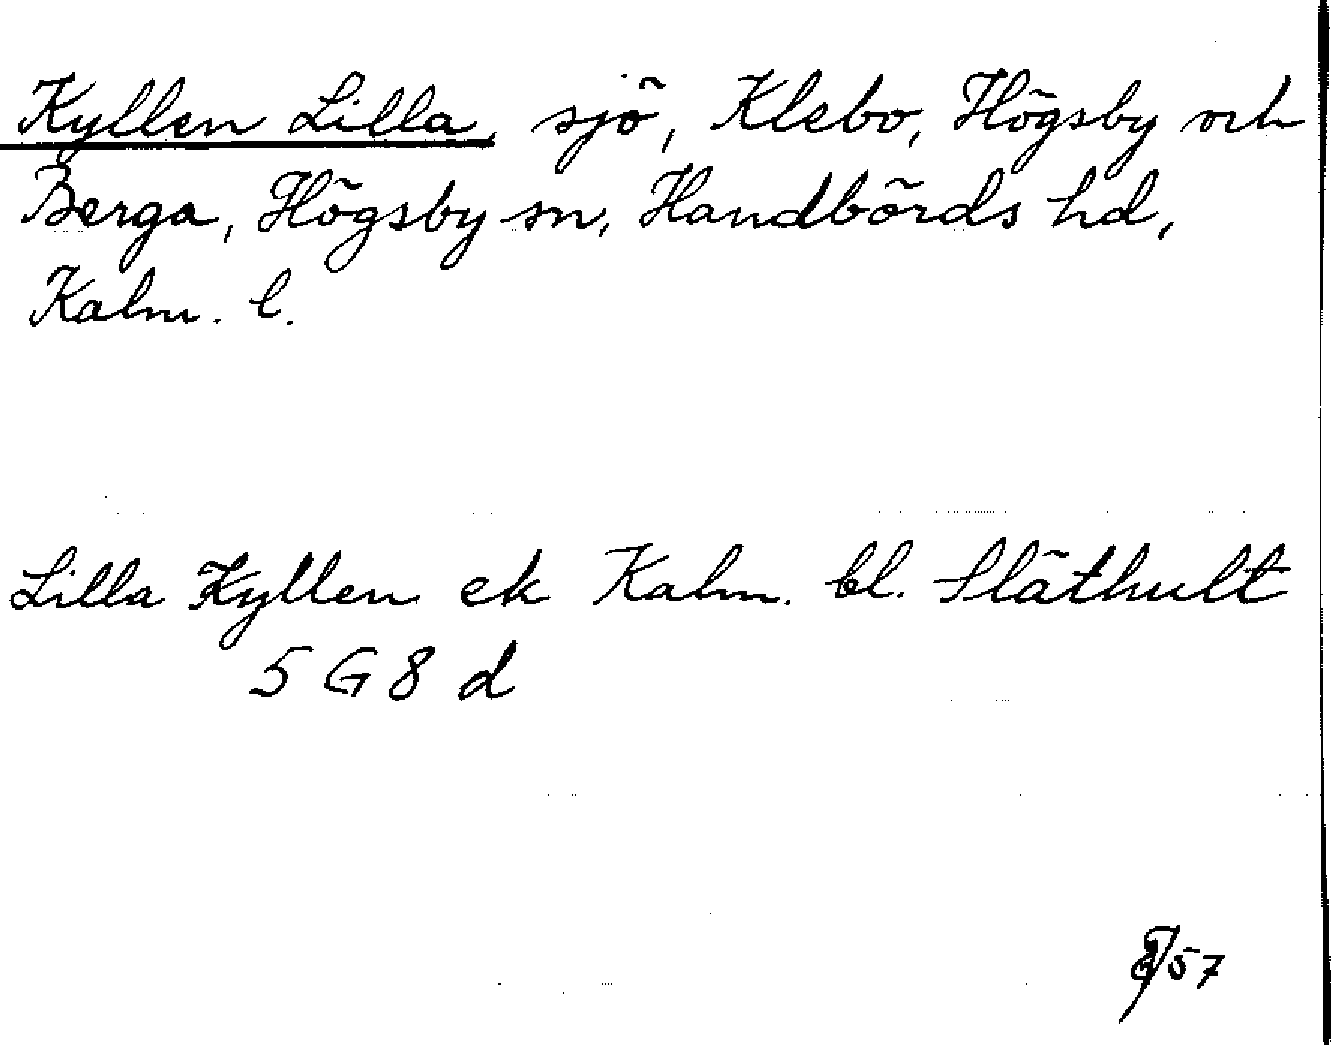 Kyllen Lilla, sjö, Klebo, Högsby och
Berga, Högsby sn, Handbörds hd,
Kalm. l.
Lilla Kyllen ek Kalm. bl. Släthult
5 G 8 d
57